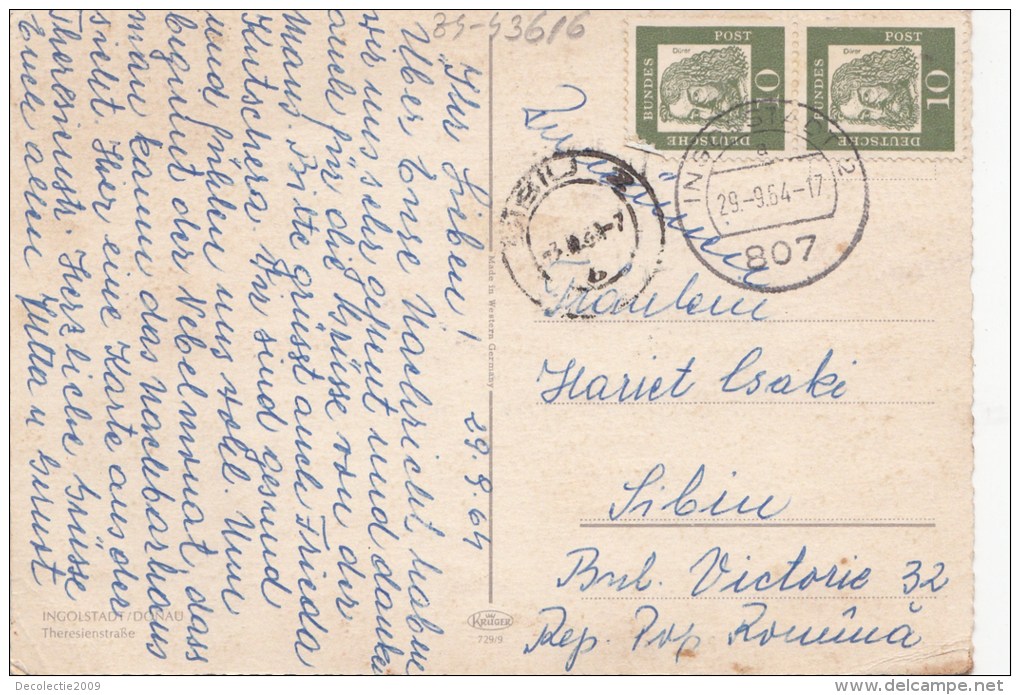 84-43616
29.9.64
"Ihr Lieben!
Über Ense Nachricht haben
wir uns sehr gefreut und danke
auch für die Grüsse von der
Maus. Bitte grüsst auch Frieda
Kutschera. Wir sind gesund
und fühlen uns wohl. Nun
beginnt der Nebelmonat, dass
man kaum das Nachbarhaus
sieht. Hier eine Karte aus der
Theresienstr. Herzliche Grüsse
Euch allen Jutta u Gerust
INGOLSTADT/DONAU
Theresienstraße
Made in Western Germany
KRÜGER
729/9
DEUTSCHE BUNDES POST
Dürer
10
DEUTSCHE BUNDES POST
Dürer
10
INGOLSTADT 2
a
29.-9.64-17
807
SIBIU 2
b
Rumänien
Fräulein
Hariet Csaki
Sibiu
Bul. Victorie 32
Rep. Pop Romînă
Decolectie2009
delcampe.net